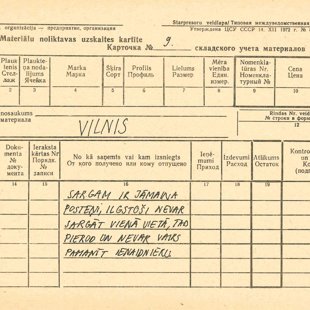 organizācija — предприятие, организация
Starpresoru veidlapa/Типовая междуведомственная
Утверждена ЦСУ СССР 14. XII 1972 г. №
Materiālu noliktavas uzskaites kartīte
Карточка № 9. складского учета материалов
Plaukts Стеллаж
Plaukteņa nodalījums Ячейка
Marka Марка
Šķira Сорт
Profils Профиль
Lielums Размер
Mēra vienība Един. измер.
Nomenklatūras Nr. Номенклатурный №
Cena Цена
1 2 3 4 5 6 7 8 9 10
nosaukums материала
VILNIS
Rindas Nr. veidl № строки в форм
12
Dokumenta № документа
Ieraksta kārtas Nr. Порядк. № записи
No kā saņemts vai kam izsniegts От кого получено или кому отпущено
Ieņēmumi Приход
Izdevumi Расход
Atlikums Остаток
14 15 16 17 18 19
SARGAM IR JĀMAINA
POSTENI, ILGSTOŠI NEVAR
SARGĀT VIENĀ VIETĀ, TAD
PIEROD UN NEVAR VAIRS
PAMANĪT IENAIDNIEKUS